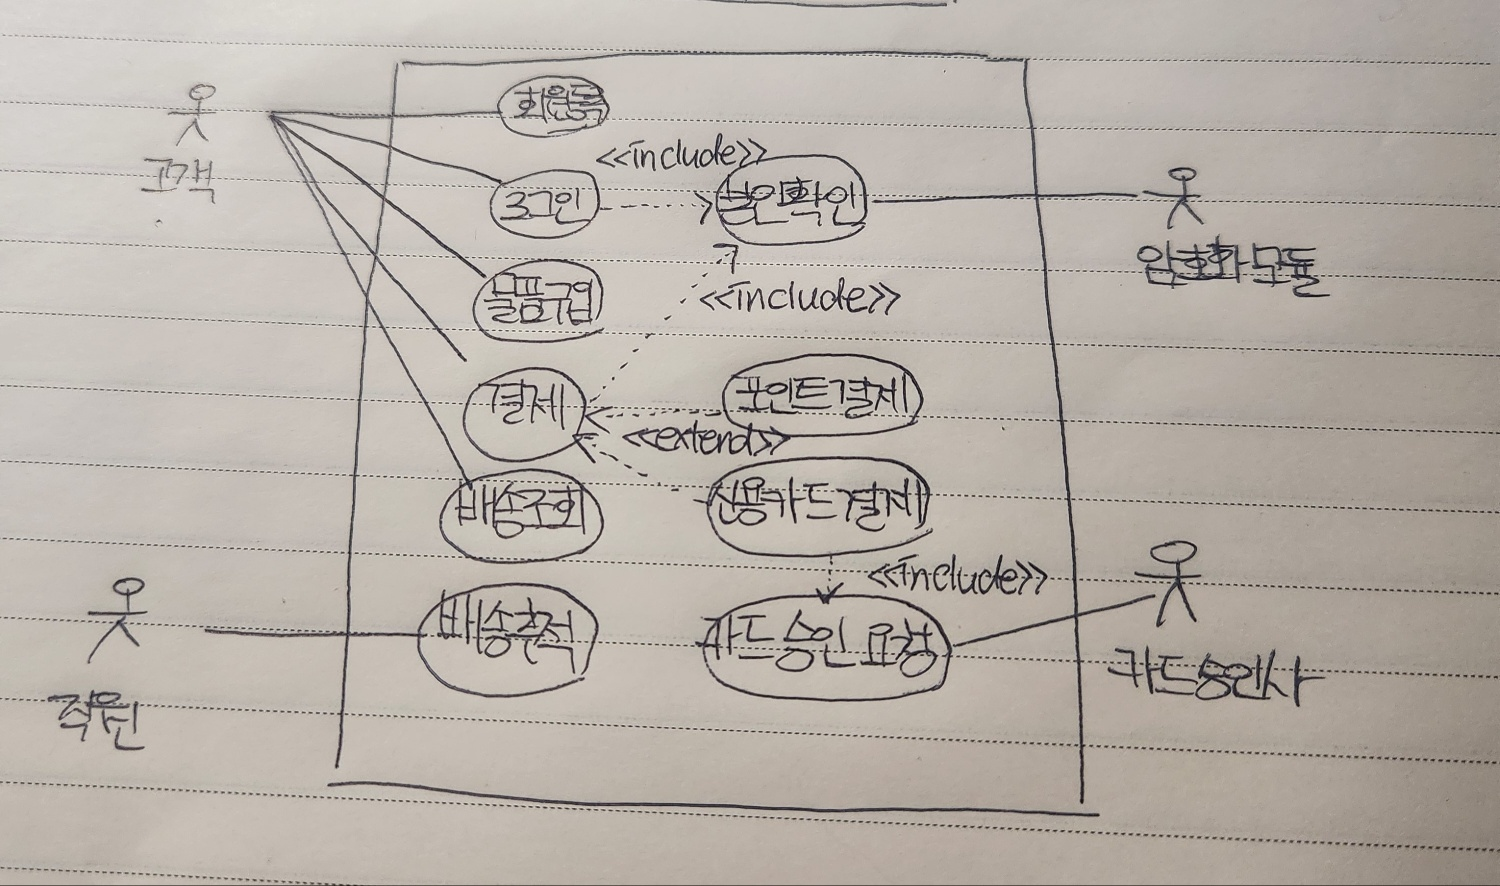 회원등록
고객
<<include>>
로그인
본인확인
암호화 모듈
물품구입
<<include>>
결제
포인트결제
<<extend>>
배송조회
신용카드결제
<<include>>
배송추적
카드 승인 요청
카드승인사
직원